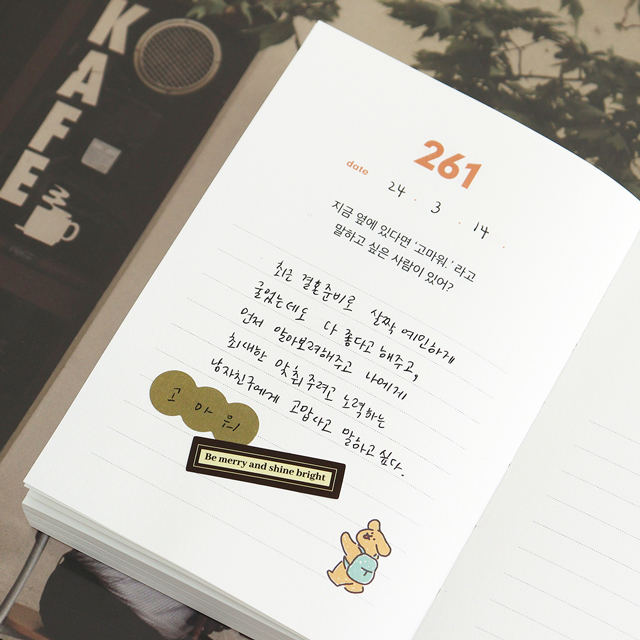 KAFE
261
date 24 . 3 . 14 .
지금 옆에 있다면 '고마워.' 라고
말하고 싶은 사람이 있어?
최근 결혼준비로 살짝 예민하게
굴었는데도 다 좋다고 해주고,
먼저 알아보려해주고 나에게
최대한 맞춰주려고 노력하는
남자친구에게 고맙다고 말하고 싶다.
고마워
Be merry and shine bright